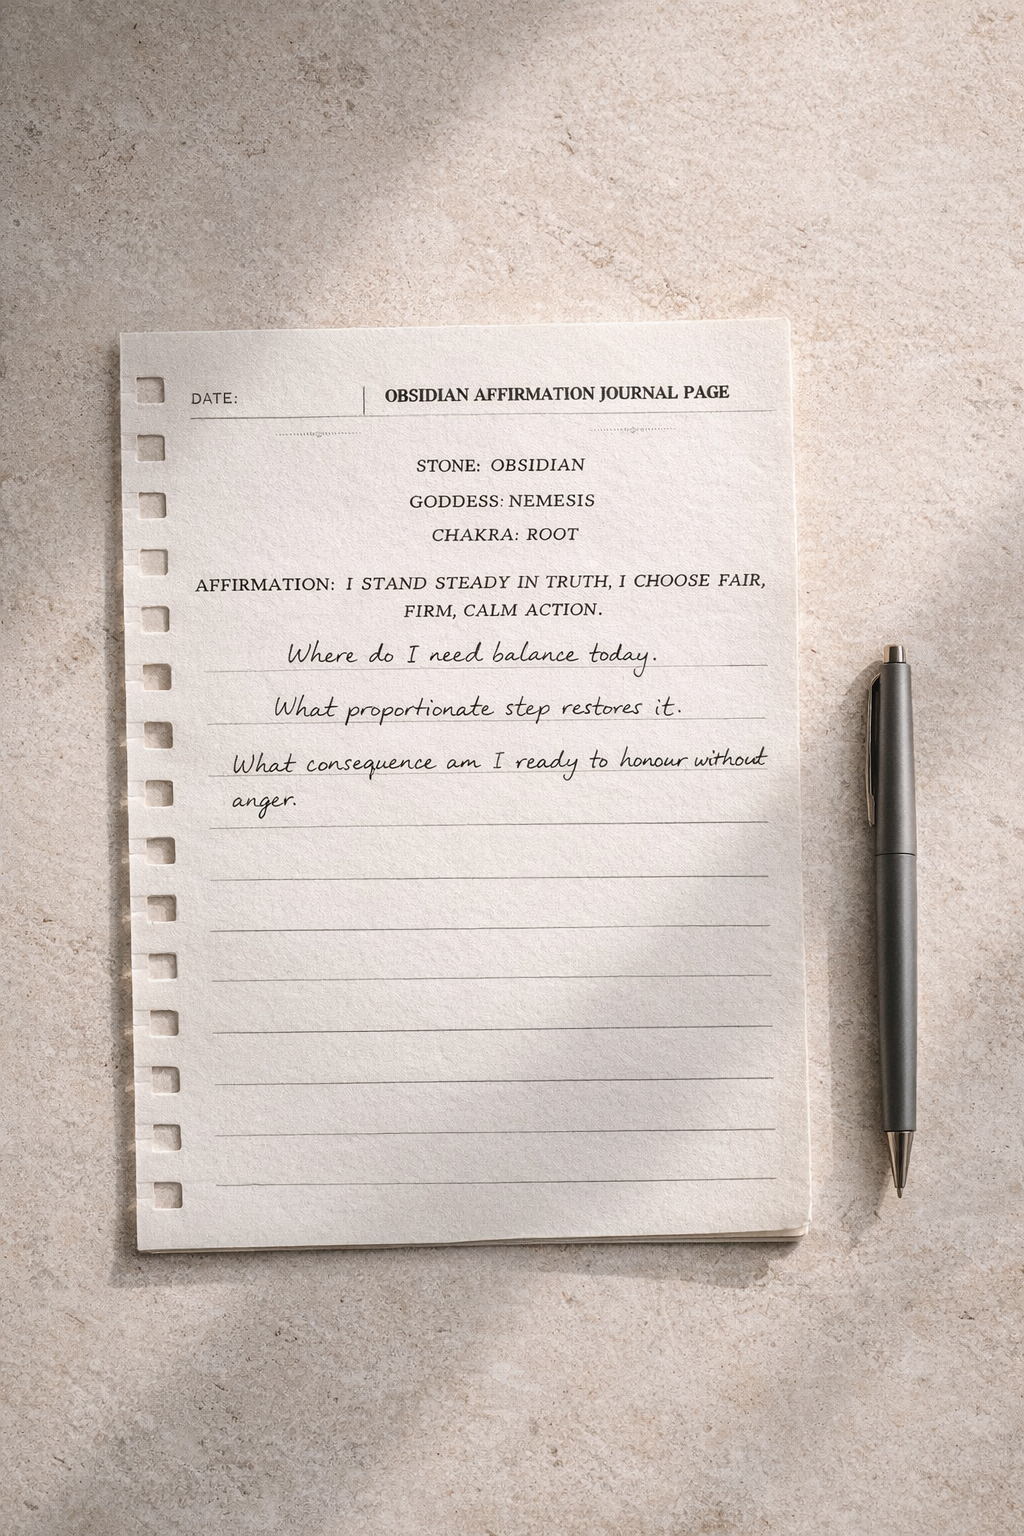 DATE: OBSIDIAN AFFIRMATION JOURNAL PAGE
STONE: OBSIDIAN
GODDESS: NEMESIS
CHAKRA: ROOT
AFFIRMATION: I STAND STEADY IN TRUTH, I CHOOSE FAIR,
FIRM, CALM ACTION.
Where do I need balance today.
What proportionate step restores it.
What consequence am I ready to honour without
anger.